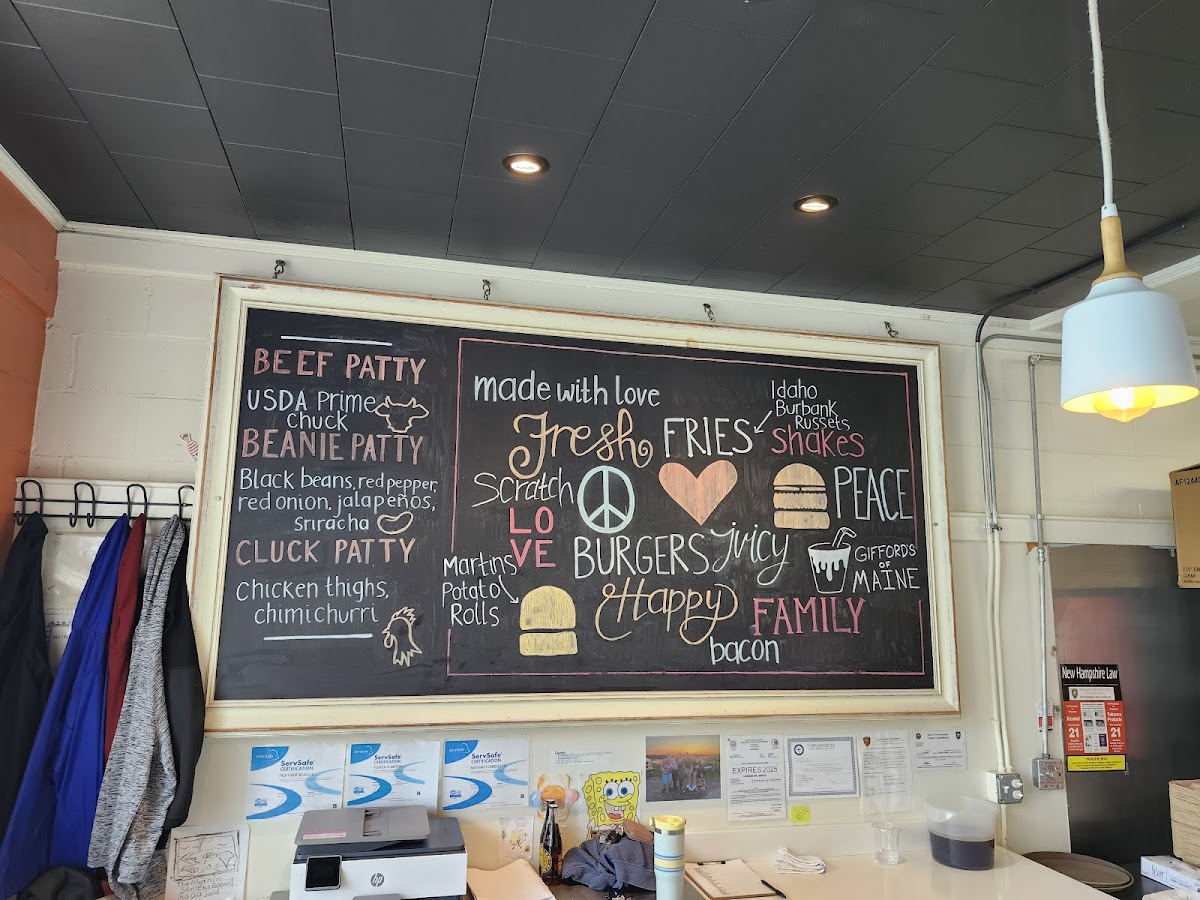 BEEF PATTY
USDA Prime
Chuck
BEANIE PATTY
Black beans, red pepper,
red onion, jalapeños,
sriracha
CLUCK PATTY
Chicken thighs,
chimichurri
made with love
Fresh
FRIES
Idaho
Burbank
Russets
shakes
Scratch
PEACE
LO
VE
BURGERS
juicy
GIFFORD'S
OF
MAINE
Martins
Potato
Rolls
Happy
FAMILY
bacon
ServSafe
CERTIFICATION
ServSafe
CERTIFICATION
ServSafe
CERTIFICATION
EXPIRES 2025
New Hampshire Law
Alcohol
21
Tobacco
Products
21
WARNING
hp
AF12440